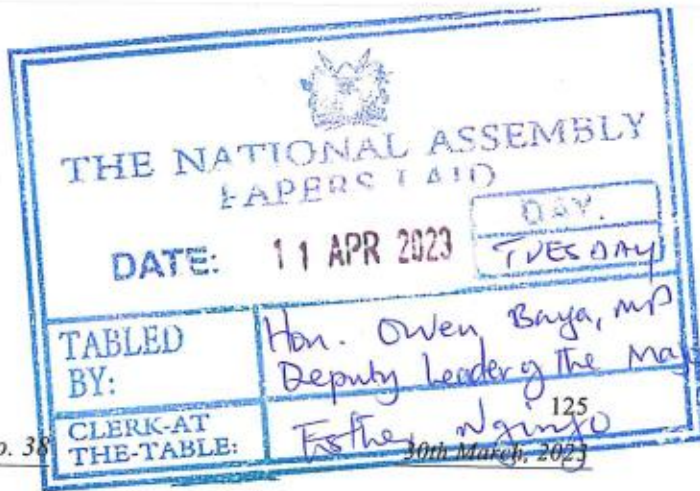 THE NATIONAL ASSEMBLY
PAPERS LAID
DAY.
DATE: 11 APR 2023 TUESDAY
TABLED BY: Hon. Owen Baya, MP
Deputy Leader of the Maj
125
CLERK-AT THE-TABLE: Esther Nginyo
o. 38
30th March, 2023